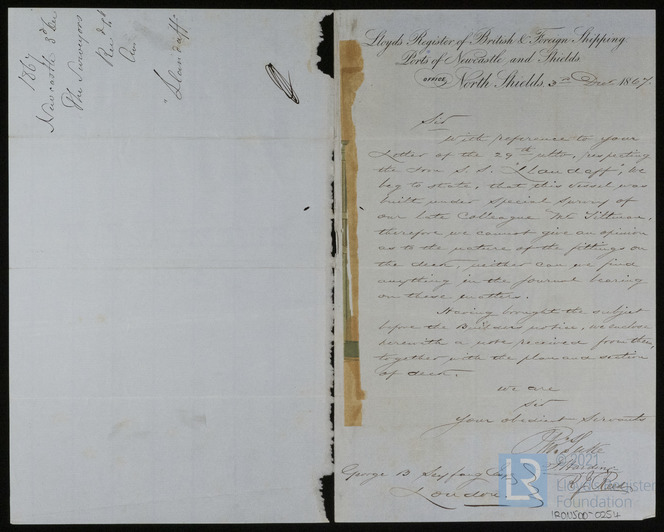 1867
Newcastle 3rd Dec
The Surveyors
Rec'd 4th
Ans
"Llandaff"
Lloyds Register of British & Foreign Shipping
Ports of Newcastle and Shields
OFFICE North Shields, 3rd Dec 1867.
Sir
With reference to your
Letter of the 29th ulto, respecting
the Iron S.S. "Llandaff", We
beg to state, that this vessel was
built under Special Survey of
our late Colleague Mr Tillman,
therefore we cannot give an opinion
as to the nature of the fittings on
the deck, neither can we find
anything in the journal bearing
on these matters.
Having brought the subject
before the Builders notice, we enclose
herewith a note received from them,
together with the plan and section
of deck.
We are
Sir
Your obedient Servants
George B Seyfang Esq
London
© 2021
LR
Lloyd's Register
Foundation
IRON500-0254